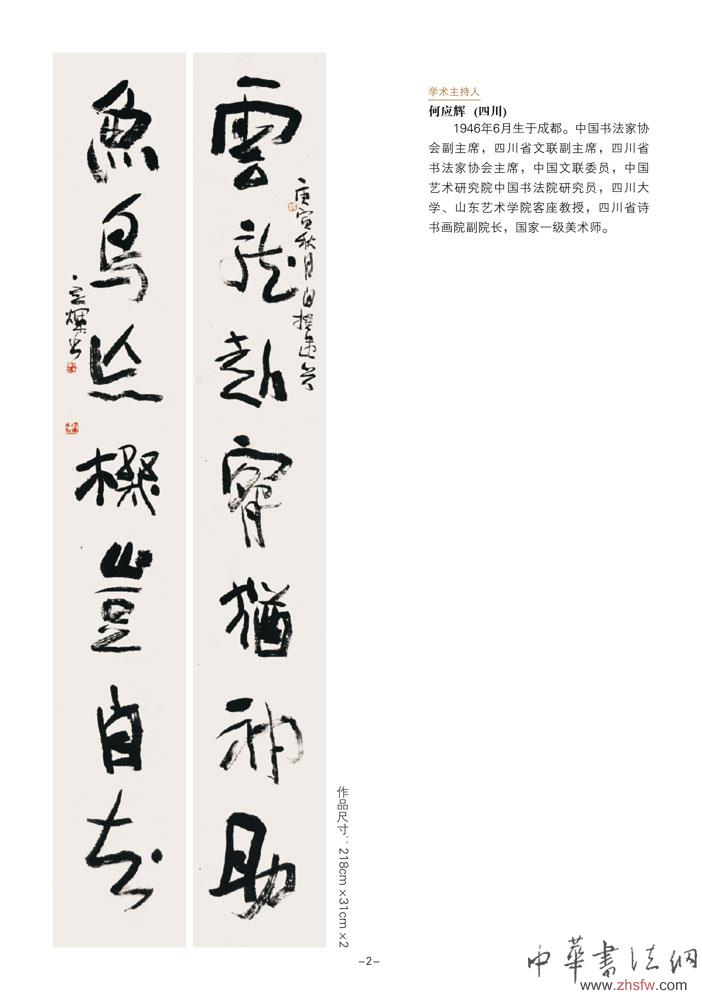 雲龍赴宵猶神助
庚寅秋月自撰
魚鳥忘機豈自知
学术主持人
何应辉 (四川)
1946年6月生于成都。中国书法家协
会副主席，四川省文联副主席，四川省
书法家协会主席，中国文联委员，中国
艺术研究院中国书法院研究员，四川大
学、山东艺术学院客座教授，四川省诗
书画院副院长，国家一级美术师。
作品尺寸：218cm×31cm×2
–2–
中华书法网
www.zhsfw.com